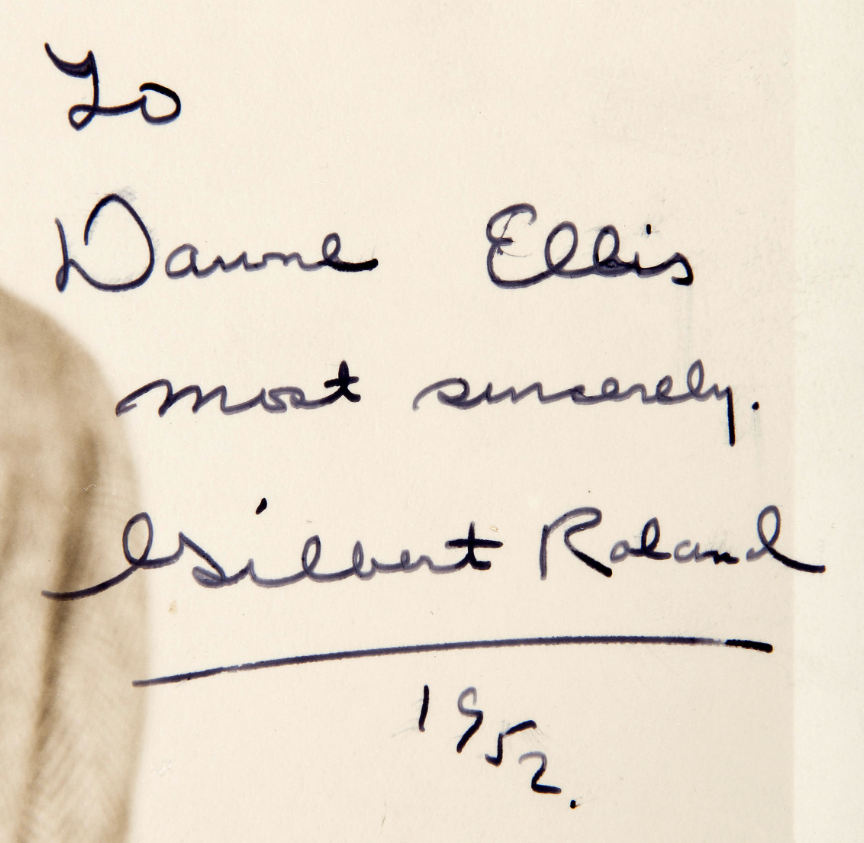 To
Dawne Ellis
most sincerely.
Gilbert Roland
1952.